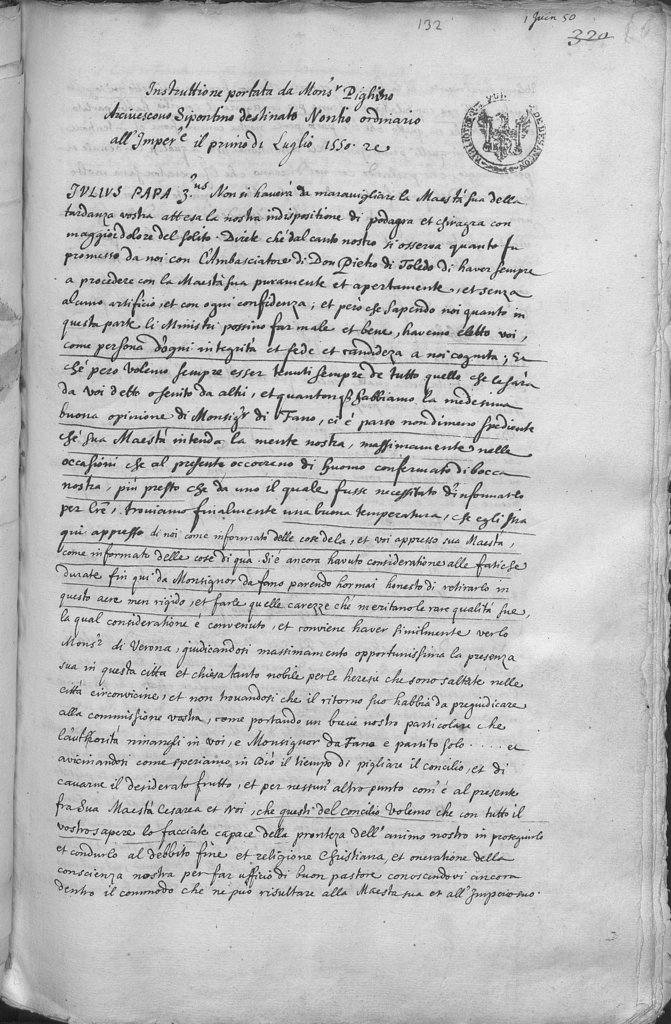 132
1 Juin 50
320
Instruttione portata da Mons.r Pighino
Arcivescovo Sipontino destinato Nontio ordinario
all'Imper.e il primo di Luglio 1550. 2e
JVLIUS PAPA 3.us Non si haverà da maravigliare la Maestà sua della
tardanza vostra attesa la nostra indispositione di podagra et chiragra con
maggior dolore del solito. Direte ché dal canto nostro si osserva quanto fu
promesso da noi con l'Ambasciatore di Don Pietro di Toledo di haver sempre
a procedere con la Maestà sua puramente et apertamente, et senza
alcuno artificio, et con ogni confidenza; et però che sapendo noi quanto in
questa parte li Ministri possino far male et bene, havemo eletto voi,
come persona d'ogni integrità et fede et candideza a noi cognita; Et
ché però volemo sempre esser tenuti sempre de tutto quello che le sara
da voi detto o scritto da altri, et quantonq3 habbiamo la medesma
buona opinione di Monsig.r di Fano, ci è parso nondimeno spediente
ché sua Maestà intenda la mente nostra, massimamente nelle
occasioni che al presente occorreno di huomo confermato di bocca
nostra, più presto che da uno il quale fusse necessitato d'informarlo
per lre, troviamo finalmente una buona temperatura, che egli stia
qui appresso di noi come informato delle cose dela, et voi appresso sua Maesta,
come informato delle cose di quà. Si è ancora havuto consideratione alle fatiche
durate fin qui da Monsignor da fano parendo hormai honesto di retirarlo in
questo aere men rigido, et farle quelle carezze ché meritano le rare qualità sue,
la qual consideratione è convenuto, et conviene haver similmente verso
Mons.r di Verona, giudicandosi massimamento opportunissima la presenza
sua in questa citta et chiesa tanto nobile per le heresie che sono saltate nelle
città circonvicine, et non trovandosi che il ritorno suo habbia da pregiudicare
alla commissione vostra, come portando un breve nostro particolare che
l'autthorita rimanghi in voi, e Monsignor da Fano e partito solo ..... et
avicinandosi come speriamo in Dio il tiempo di pigliare il concilio, et di
cavarne il desiderato frutto, et per nessun altro punto com'è al presente
fra Sua Maestà Cesarea et Noi, che questi del Concilio Volemo che con tutto il
vostro sapere lo facciate capace della pronteza dell'animo nostro in proseguirlo
et condurlo al debbito fine et religione Christiana, et oneratione della
conscienza nostra per far ufficio di buon pastore conoscendovi ancora
dentro il commodo che ne può risultare alla Maesta sua et all'Imperio suo.